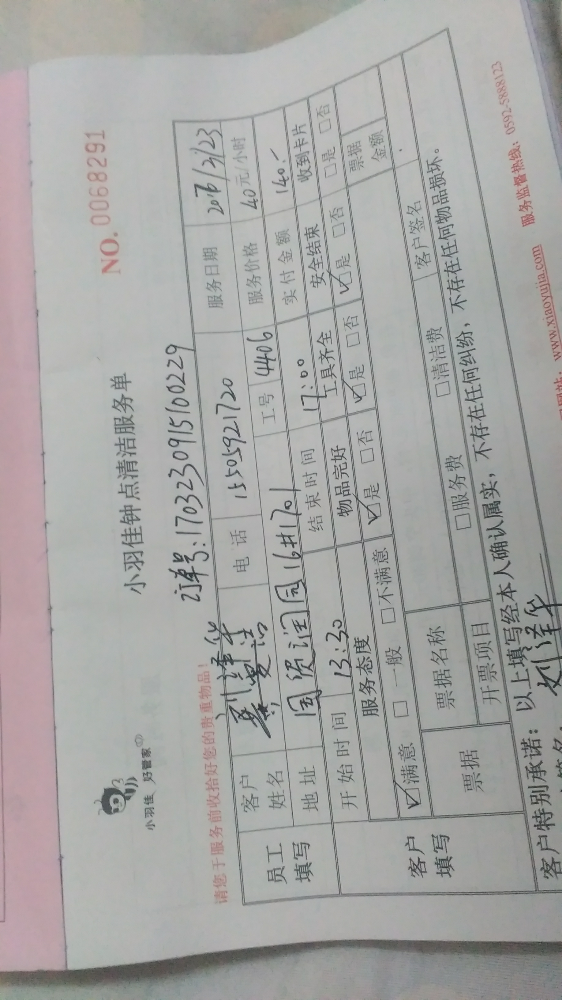 NO.0068291
小羽佳 好管家
小羽佳钟点清洁服务单
订单号:1703230915100229
请您于服务前收拾好您的贵重物品!
员工填写
客户姓名 刘泽华 电话 15505921720 服务日期
地址 国贸润园16#1701 工号 4406 服务价格 40元/小时
开始时间 13:30 结束时间 17:00 实付金额 140.-
客户填写
服务态度 物品完好 工具齐全 安全结束 收到卡片
☑满意 □一般 □不满意 ☑是 □否 ☑是 □否 ☑是 □否 □是 □否
票据 票据名称 票据金额
开票项目 □服务费 □清洁费 客户签名
客户特别承诺: 以上填写经本人确认属实,不存在任何纠纷,不存在任何物品损坏。
签名: 刘泽华
网站: www.xiaoyujia.com 服务监督热线: 0592-5888123